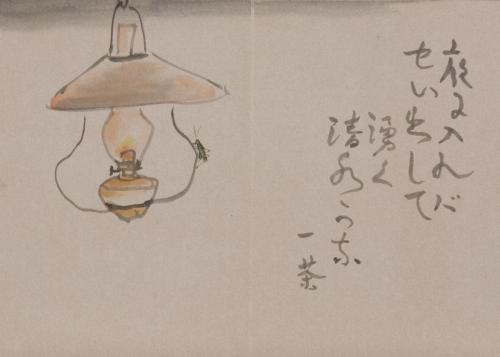 夜に入れば
せい出して
湧く
清水かな
一茶